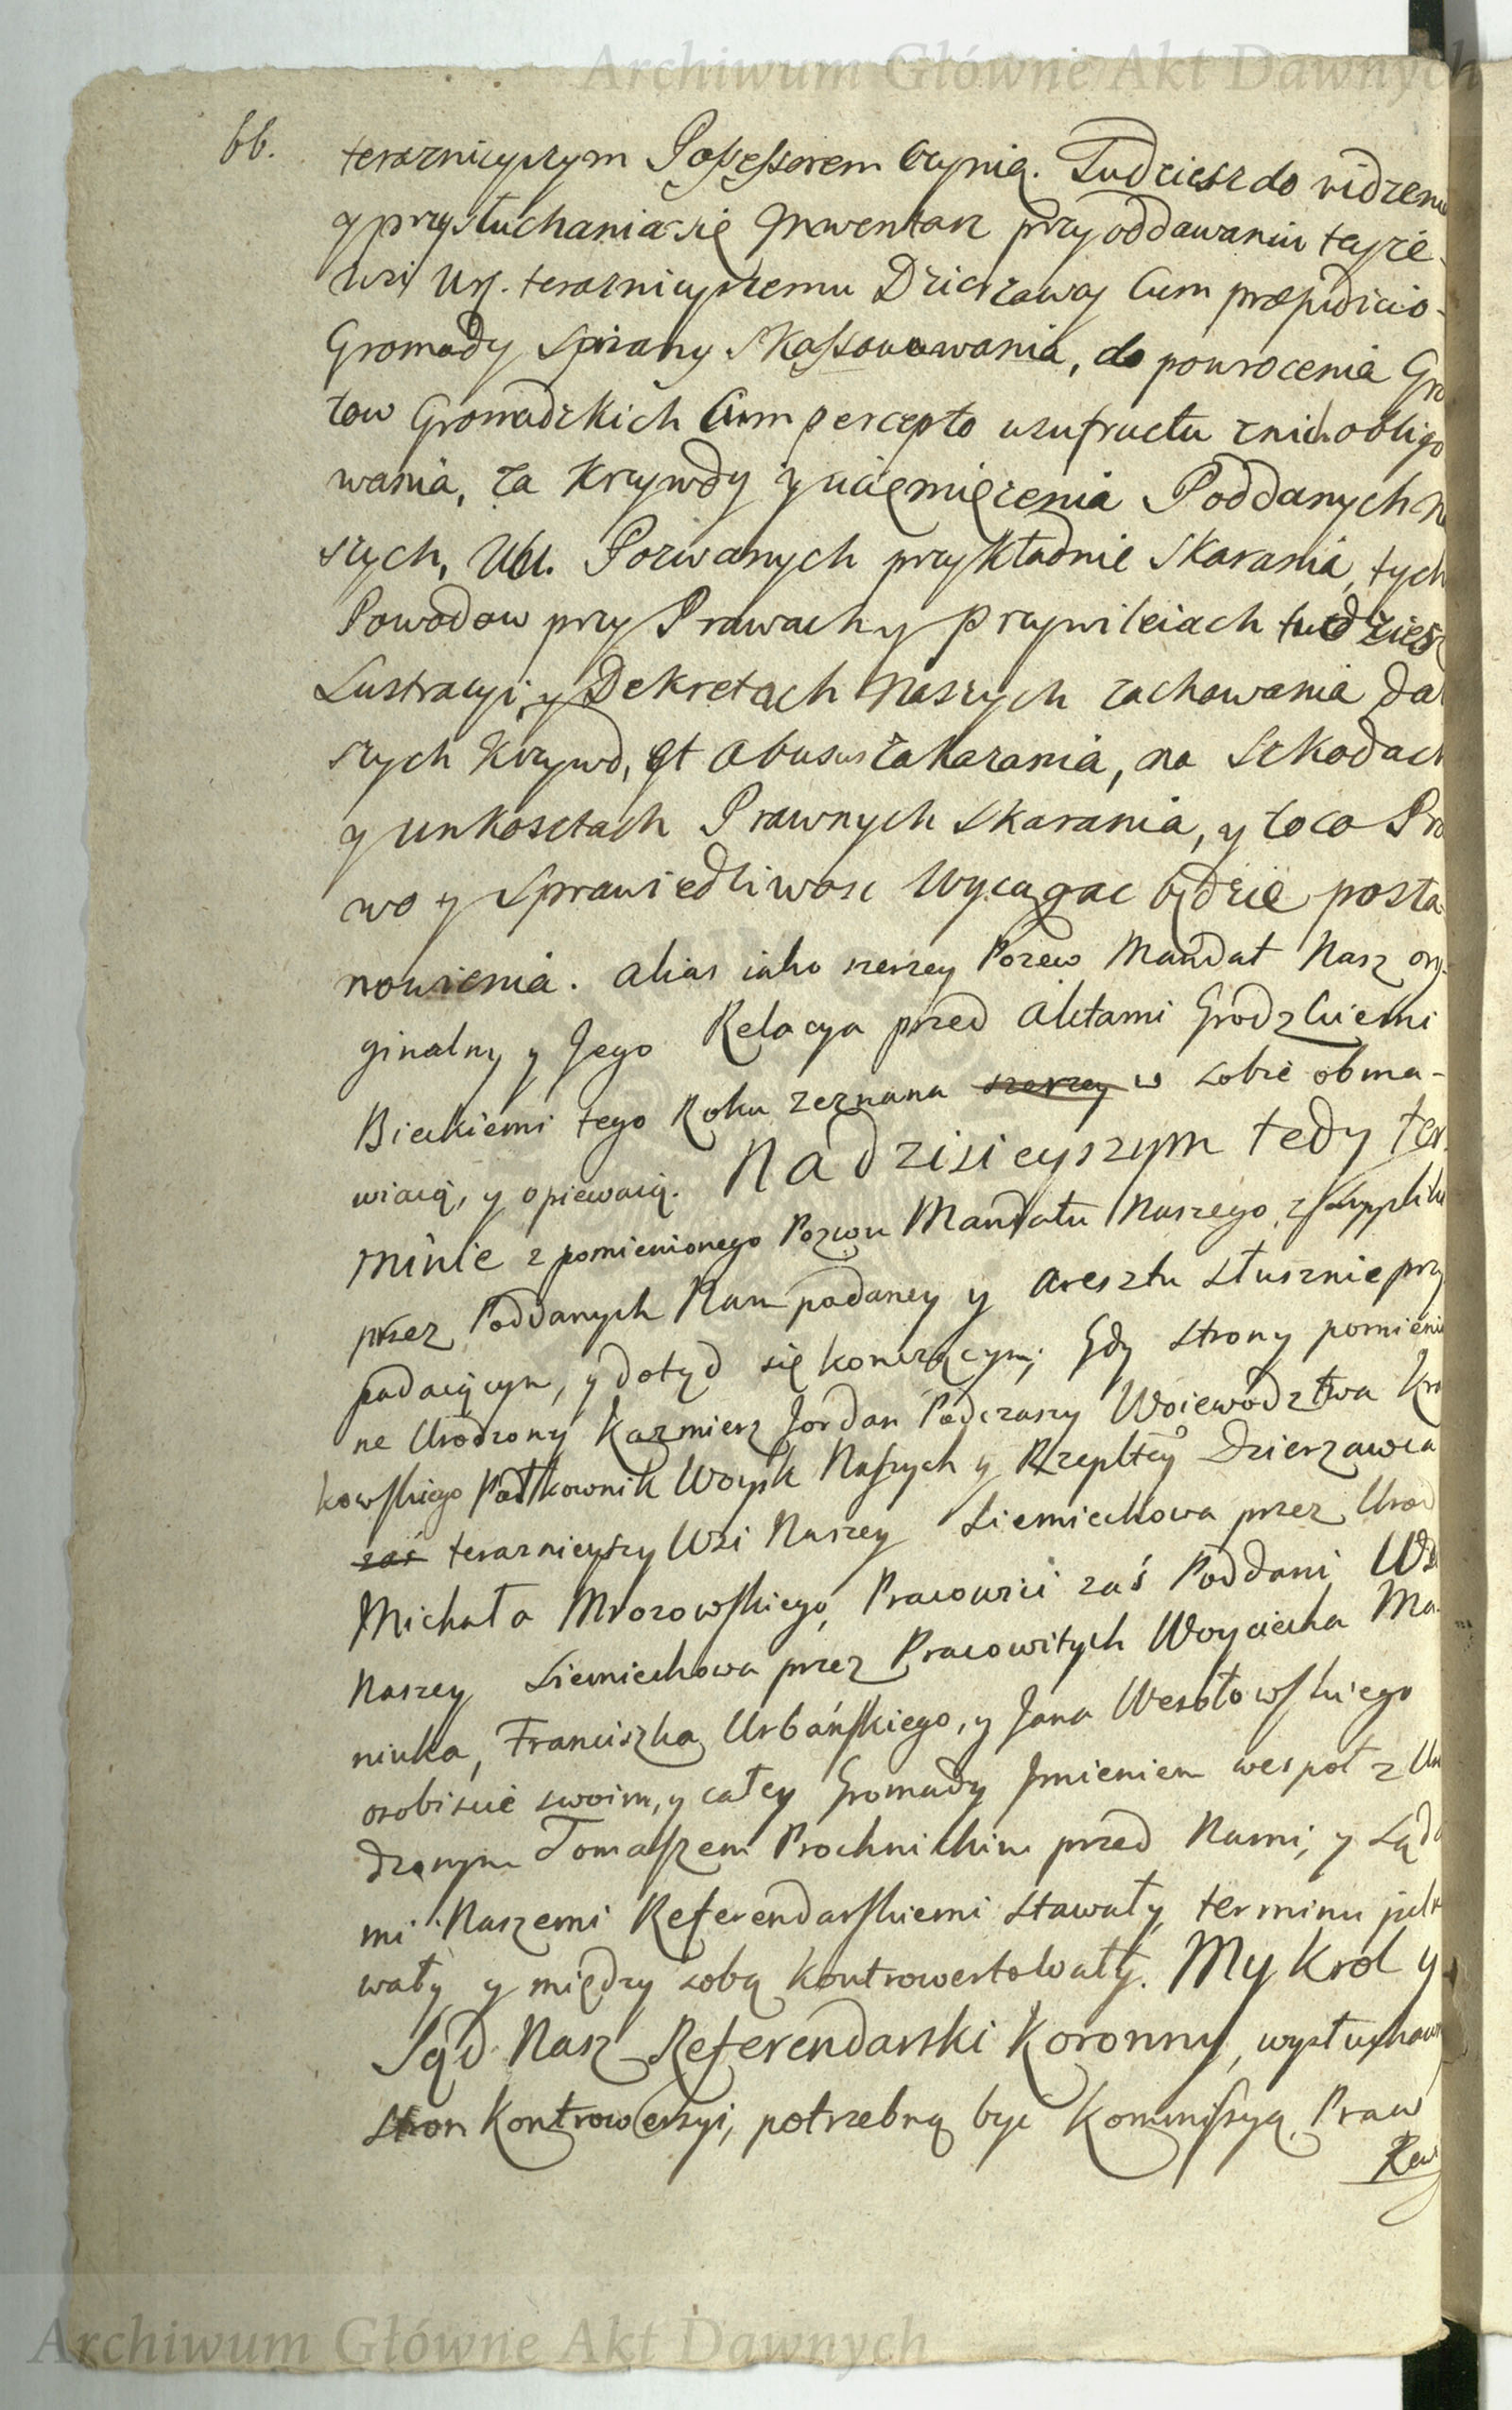 Archiwum Główne Akt Dawnych
66.
teraznieyszym Possessorem czynią. Tudziesz do widzenia
y przysłuchania się Inwentarz przy oddawaniu teyże
wsi Ur. teraznieyszemu Dzierzawcy Cum præjudicio
Gromady spisany skassowowania, do powrocenia Gru
tow Gromadzkich Cum percepto usufructu znich obligo
wania, za Krzywdy y uciemięzenia Poddanych Na
szych, Ubl. Pozwanych przykładnie skarania, tych
Powodow przy Prawach y Przywileiach tudziesz
Lustracyi y Dekretach Naszych zachowania dal
szych Krzywd, et abusus zakazania, na szkodach
y unkosztach Prawnych skarania, y to co Pra
wo y sprawiedliwosc wyciągac będzie posta
nowienia. alias iako szerzey Pozew Mandat Nasz ory-
ginalny y Jego Relacya przed Aktami Grodzkiemi
Bieckiemi tego Roku zeznana szerzey w sobie obma-
wiaią, y opiewaią. Na dzisieyszym tedy ter
minie z pomienionego Pozwu Mandatu Naszego, z Suppliki
przez Poddanych Nam podaney y aresztu słusznie przy
padaiącym, y dotąd się konczącym; Gdy strony pomienio
ne Urodzony Kazmierz Jordan Podczaszy Woiewodztwa Kra
kowskiego Połkownik Woysk Naszych y Rzeplitey Dzierzawca
zas teraznieyszy Wsi Naszey Siemiechowa przez Urod
Michała Mrozowskiego, Pracowici zaś Poddani Wsi
Naszey Siemiechowa przez Pracowitych Woyciecha Ma-
niuka, Franciszka Urbańskiego, y Jana Wesołowskiego
osobiscie swoim, y całey Gromady Imieniem wespoł z Uro
dzonym Tomaszem Prochnickim przed Nami, y Sąda
mi Naszemi Referendarskiemi stawały, terminu pilno
wały y między sobą kontrowertowały. My Krol y
Sąd Nasz Referendarski Koronny, wysłuchawszy
stron Kontrowersyi, potrzebną byc Kommissyą Praw
Rew
Archiwum Główne Akt Dawnych